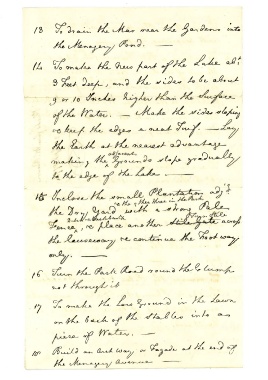 13 To drain the Moss near the Gardens into
the Menagery Pond. —
14 To make the New part of the Lake abt
3 Feet deep, and the sides to be about
9 or 10 Inches higher than the Surface
of the Water. — Make the sides sloping
& keep the edges a neat Turf — Lay
the Earth at the nearest advantage
making the adjacent Grounds slope gradually
to the edge of the Lake —
15 Inclose the small Plantation adjg
the Dog Yard with a strong Pale
Fence, & place another across
the causeway & continue the Foot way
only. —
16 Turn the Park Road round the Clump
not through it
17 To make the low Ground in the Lawn
on the back of the Stables into a
piece of Water. —
18 Build an Arch way or Facade at the end of
the Menagery Avenue